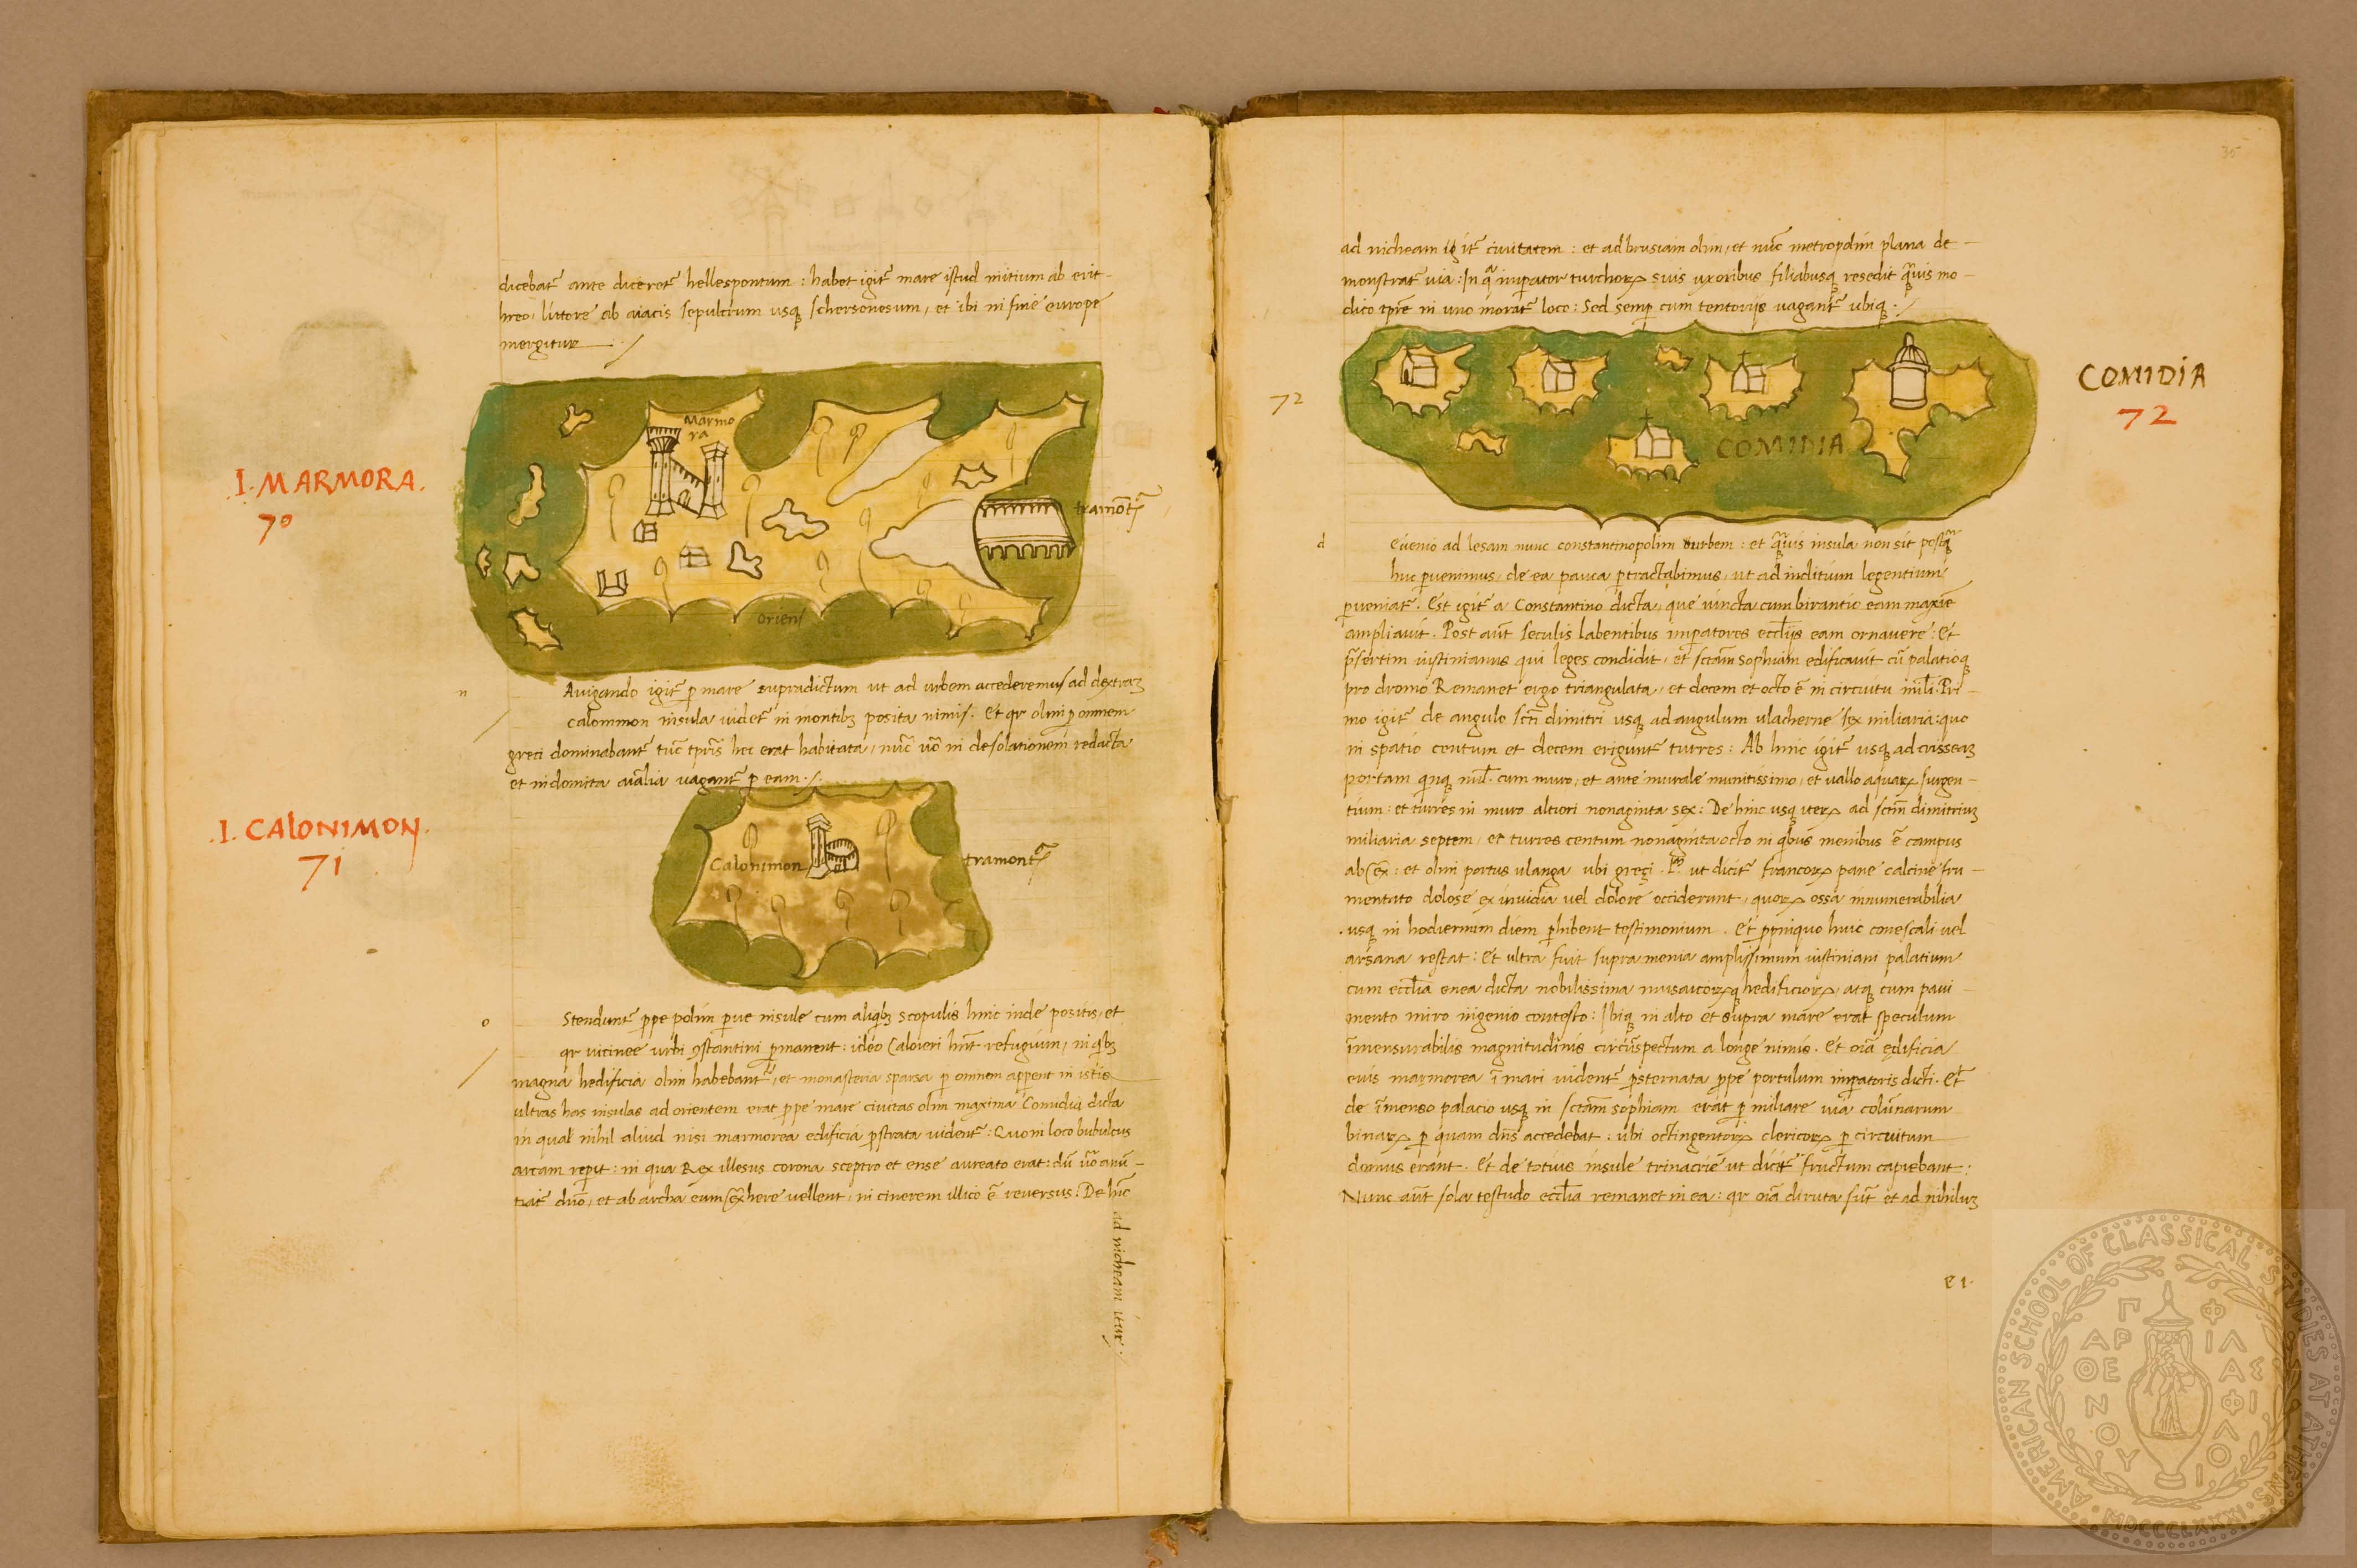 dicebatᷣ ante diceretᷣ hellespontum : habet igitᷣ mare istud initium ab erit-
hreo, littore ab aiacis sepulcrum usqꝫ schersonesum, et ibi in fine europe
mergitur
Marmo
ra
I. MARMORA.
70
tramōtᵃ
oriens
n
Avigando igitᷣ ꝑ mare supradictum ut ad urbem accederemus ad dextraꝫ
calommon insula videtᷣ in montibꝫ posita nimis. Et qr olim ꝑ omnem
greci dominabantᷣ tūc tꝑris hec erat habitata, nūc vō in desolationem redacta
et indomita aīalia vagantᷣ ꝑ eam.
.I. CALONIMON.
71
Calonimon
tramontᵃ
o
Stenduntᷣ ꝓpe polim parue insule cum aliqbꝫ scopulis hinc inde positis, et
qr vicinee urbi ꝯstantini ꝑmanent : ideo Caloieri hn̄t refugium, in qbꝫ
magna hedificia olim habebantᷣ, et monasteria sparsa ꝑ omnem apparent in istis
ultras has insulas ad orientem erat ꝓpe mare civitas olim maxima Comidia dicta
in qua nihil aliud nisi marmorea edificia ꝓstrata videntᷣ : Quo in loco bubulcus
arcam repit : in qua Rex illesus corona sceptro et ense aureato erat : dū vō anū-
tiatᷣ duo, et ab archa eum exhere vellent, in cinerem illico ē reversus : De hīc
ad nicheam itur
35
ad nicheam igitᷣ civitatem : et ad brusiam olim, et nūc metropolim plana de-
monstratᷣ via : In qᵃ imperator turchoꝝ suis uxoribus filiabusqꝫ resedit qᵃvis mo-
dico tꝑre in uno moratᷣ loco : Sed semꝑ cum tentoriis vagantᷣ ubiqꝫ.
72
COMIDIA
COMIDIA
72
d
Evenio ad lesam nunc constantinopolim urbem : et qᵃvis insula non sit postqᵃ
huc ꝑvenimus, de ea pauca ꝑtractabimus, ut ad inditum legentium
ꝑveniatᷣ. Est igitᷣ a Constantino dicta, que vincta cum birantio eam maxīe
ampliavit. Post aūt seculis labentibus imperatores eccliīs eam ornavere : Et
p̄sertim iustinianus qui leges condidit, et sctam sophiam edificavit cū palatioqꝫ
pro dromo Remanet ergo triangulata, et decem et octo ē in circuitu mil. Pri-
mo igitᷣ de angulo scti dimitri usqꝫ ad angulum ulacherne sex miliaria : quo
in spatio centum et decem eriguntᷣ turres : Ab hinc igitᷣ usqꝫ ad crisseaꝫ
portam qinqꝫ mil. cum muro, et ante murale munitissimo, et vallo aquaꝝ surgen-
tium : et turres in muro altiori nonaginta sex : De hinc usqꝫ iterꝝ ad sctm dimitriuꝫ
miliaria septem, et turres centum nonaginta octo in qbus menibus ē campus
ab ex : et olim portus ulanga ubi greci . ut dicitᷣ francoꝝ pane calcine fru-
mentato dolose ex invidia vel dolore occiderunt, quoꝝ ossa innumerabilia
usqꝫ in hodiernum diem ꝑhibent testimonium. Et ꝓpinquo huic conescali vel
arsana restat : Et ultra fuit supra menia amplissimum iustiniani palatium
cum ecclīa enea dicta nobilissima musaicoꝝqꝫ hedificioꝝ, atqꝫ cum pavi-
mento miro ingenio contesto : Ibiqꝫ in alto et supra mare erat speculum
īmensurabilis magnitudinis circūspectum a longe nimis. Et oīa edificia
euis marmorea ī mari videntᷣ ꝓsternata ꝓpe portulum imperatoris dicti. Et
de īmenso palacio usqꝫ in sctam sophiam erat ꝑ miliare via colūnarum
binaꝝ ꝑ quam dn̄s accedebat : ubi octingentoꝝ clericoꝝ ꝑ circuitum
domus erant. Et de totius insule trinacrie ut dicitᷣ fructum capiebant :
Nunc aūt sola testudo ecclīa remanet in ea : qr oīa diruta sūt et ad nihiluꝫ
e 1.
AMERICAN SCHOOL OF CLASSICAL STUDIES AT ATHENS
MDCCCLXXXI
ΠΑΡΘΕΝΟΥ
ΦΙΛΑΣ ΦΙΛΟΙ